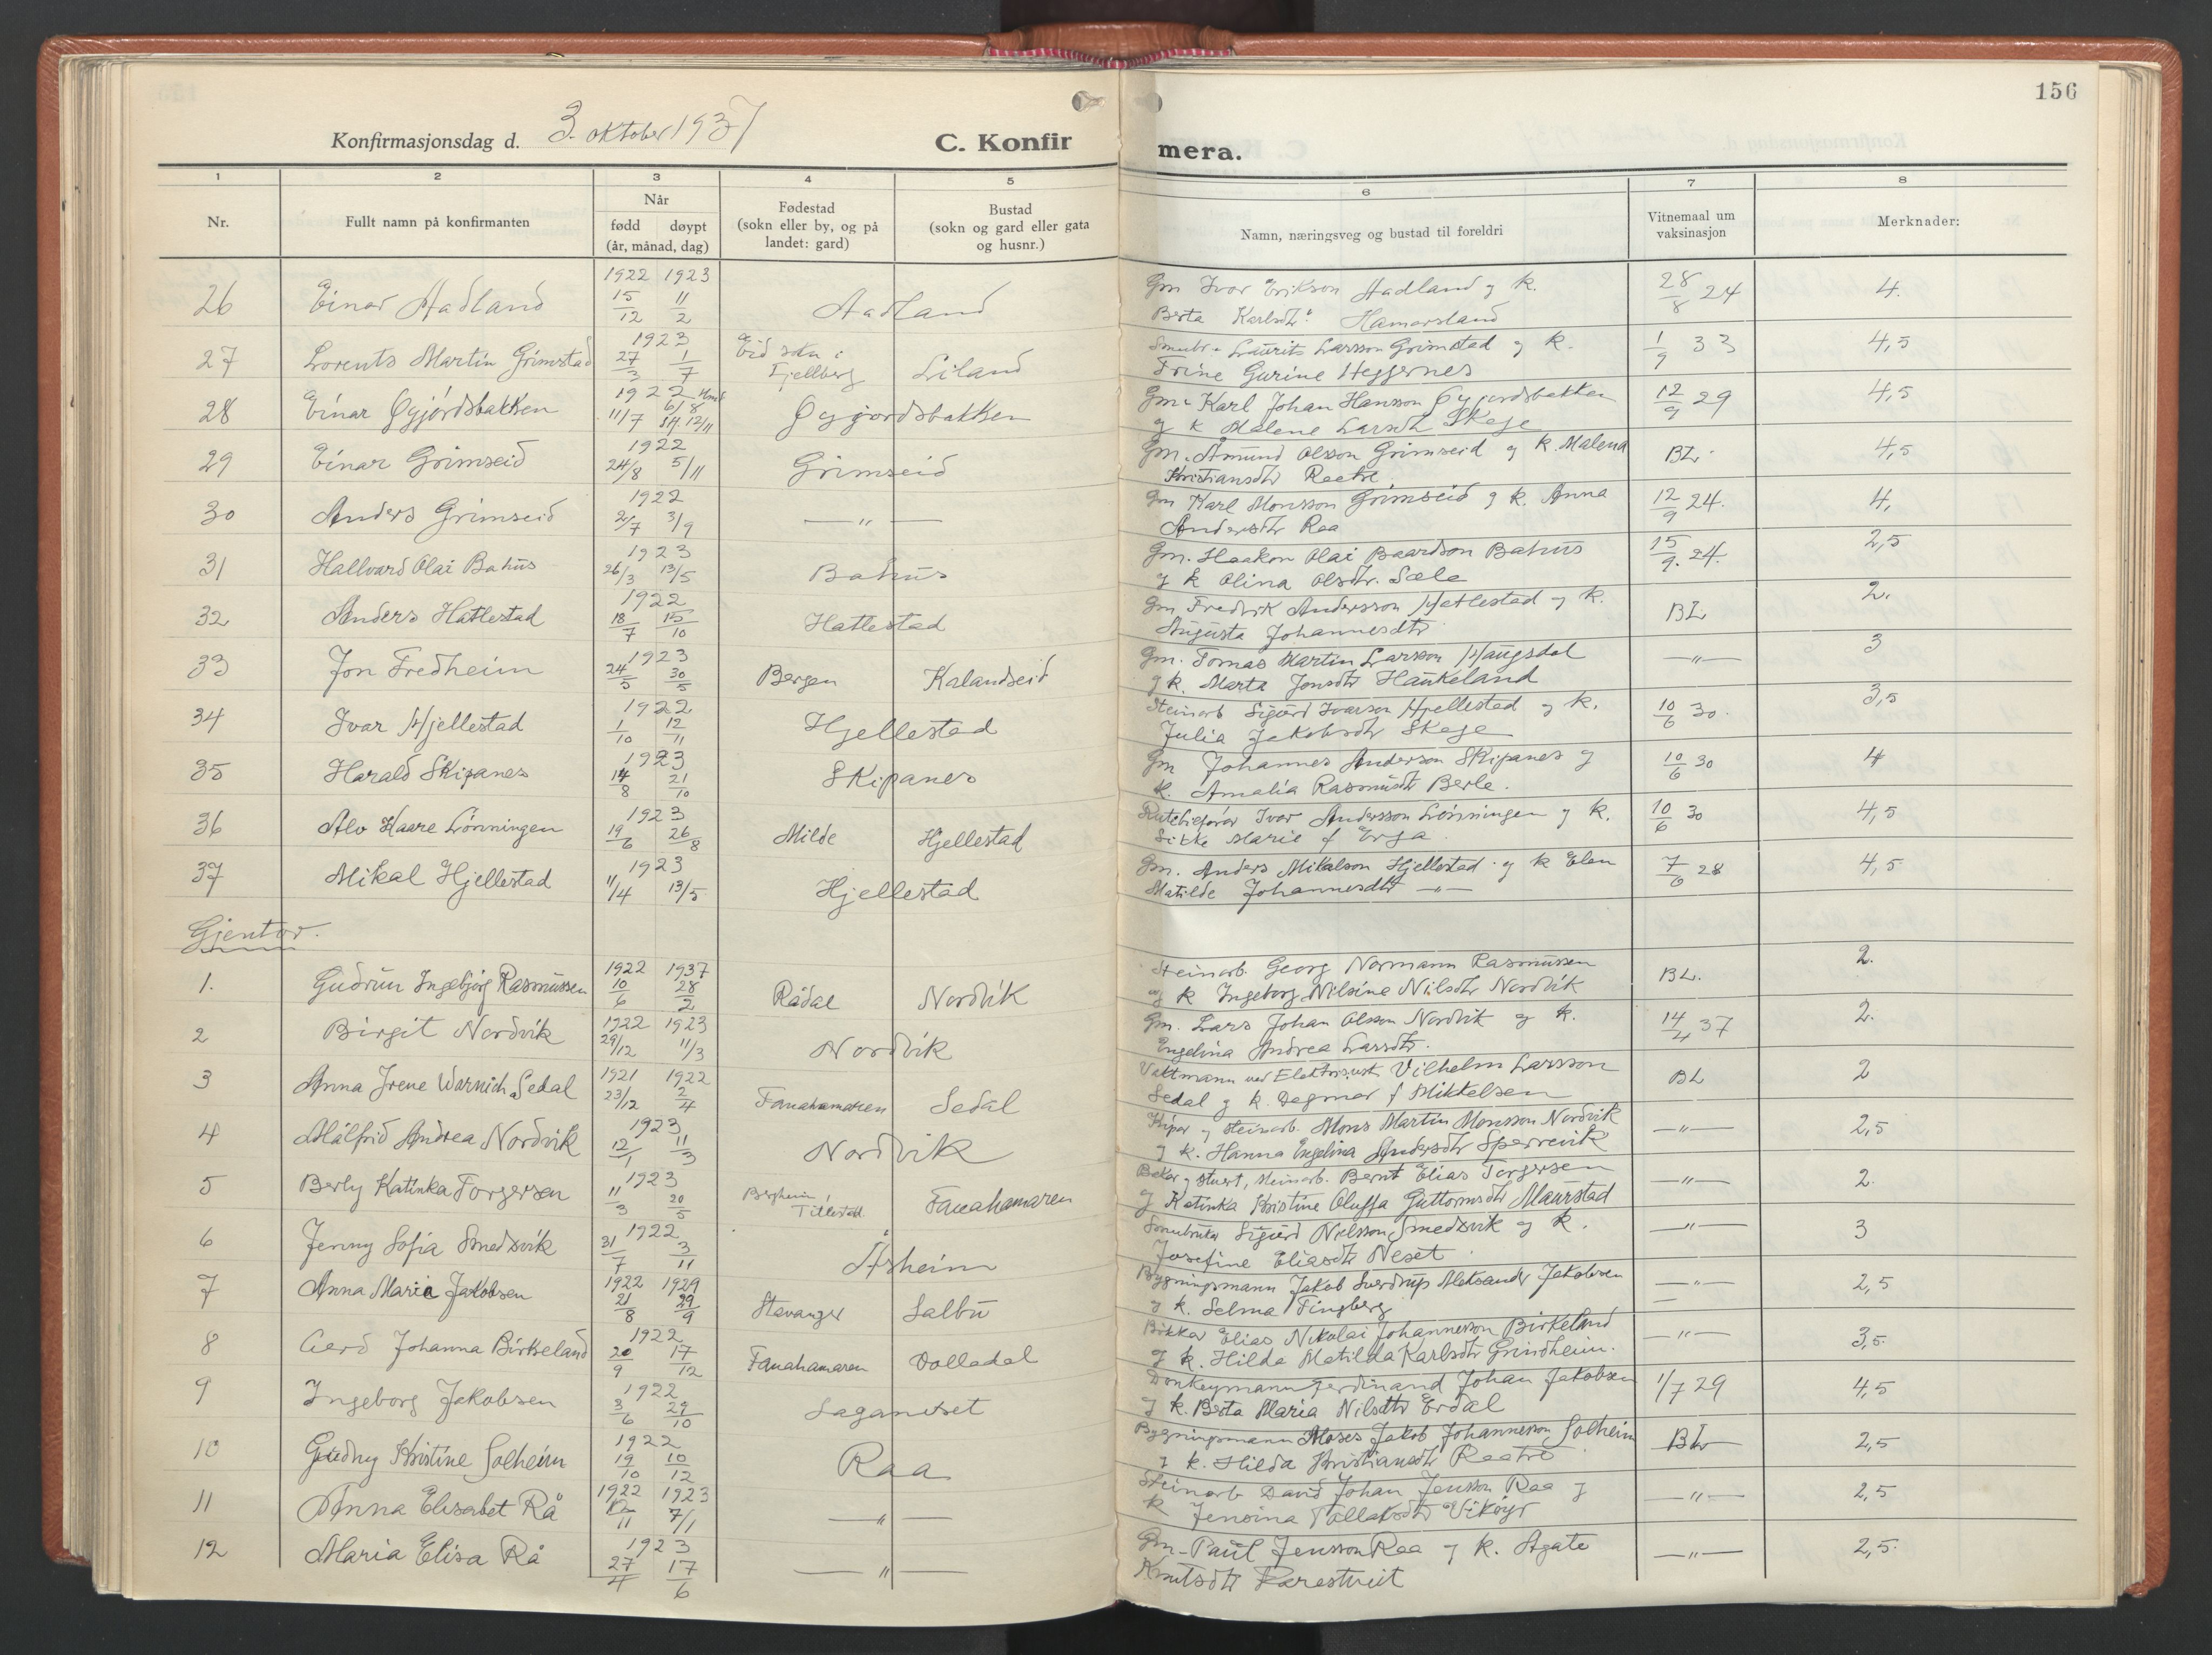 156
Konfirmasjonsdag d. 3. oktober 1937
C. Konfirmera.
1 2 3 4 5 6 7 8
Nr. Fullt namn på konfirmanten Når fødd døypt (år, månad, dag) Fødestad (sokn eller by, og på landet: gard) Bustad (sokn og gard eller gata og husnr.) Namn, næringsveg og bustad til foreldri Vitnemaal um vaksinasjon Merknader:
26 Einar Aadland 1922 15/12 1923 11/2 Aadland Gm Ivar Erikson Aadland og k. 28/8 24 4.
Berta Karlsdtr. Hamarsland
27 Lorents Martin Grimstad 1923 27/3 1/7 Eid sokn i Fjellberg Liland Laurits Larsson Grimstad og k. 1/9 33 4,5
Trine Gurine Heggernes
28 Einar Øygjordsbakken 1922 11/7 6/8 12/11 Øygjordsbakken Gm. Karl Johan Hansson Øygjordsbakken 12/9 29 4,5
og k Malene Larsdtr Skage
29 Einar Grimseid 1922 24/8 5/11 Grimseid Gm. Åmund Olsson Grimseid og k. Malena BL. 4,5
Kristiansdtr Raatre
30 Anders Grimseid 1922 2/7 3/9 — " — Gm Karl Monsson Grimseid og k. Anna 12/9 24. 4,
Andersdtr Raa
31 Hallvard Olai Bahus 1923 26/3 13/5 Bahus Gm. Haakon Olai Baardson Bahus 15/9. 24. 2,5
og k Olina Olsdtr. Sæle
32 Anders Hatlestad 1922 18/7 15/10 Hatlestad Gm Fredrik Andersson Hatlestad og k. BL. 2.
Augusta Johannesdtr
33 Jon Fredheim 1923 24/5 30/5 Bergen Kalandseid Gm. Tomas Martin Larsson Haugsdal — " — 3
og k. Marta Jonsdtr Haukeland
34 Ivar Hjellestad 1922 1/10 12/11 Hjellestad Steinarb Sigurd Ivarson Hjellestad og k. 10/6 30. 3,5
Julia Jakobsdtr Skage
35 Harald Skipanes 1923 14/8 21/10 Skipanes Gm Johannes Anderson Skipanes og 10/6 30 4
k. Amalia Rasmusdtr Berle.
36 Alv Kaare Lönningen 1923 19/6 26/8 Milde Hjellestad Rutebileførar Ivar Andersson Lönningen og k. 10/6 30 4,5
Sikke Marie f Erga
37 Mikal Hjellestad 1923 11/4 13/5 Hjellestad Gm. Anders Mikalson Hjellestad og k Elen 7/6 28 4,5
Matilde Johannesdtr — " —
Gjentor.
1. Gudrun Ingebjörg Rasmussen 1922 10/6 1937 28/2 Rådal Nordvik Steinarb. Georg Normann Rasmussen BL. 2.
og k Ingeborg Nilsine Nilsdtr Nordvik
2 Birgit Nordvik 1922 29/12 1923 11/3 Nordvik Gm. Lars Johan Olsson Nordvik og k. 14/4 37 2.
Engelina Andrea Larsdtr.
3 Anna Irene Warnich Sedal 1921 23/12 1922 2/4 Fanahamaren Sedal Vaktmann ved Elektrisverk Vilhelm Larsson BL 2
Sedal og k. Dagmar f Mikkelsen
4 Målfrid Andrea Nordvik 1923 12/1 11/3 Nordvik og steinarb. Mons Martin Monsson Nordvik — " — 2,5
og k. Hanna Engelina Andersdtr Sperrevik
5 Berly Katinka Torgersen 1923 11/3 20/5 Bergheim, Titlestad Fanahamaren Baker og stuert, steinarb. Bernt Elias Torgersen — " — 2.
og Katinka Kristine Oluffa Guttormsdtr Maurstad
6 Jenny Sofia Smedsvik 1922 31/7 3/11 Åsheim Smubruker Sigurd Nielsson Smedsvik og k. — " — 3
Josefine Eliasdtr Neset
7 Anna Maria Jakobsen 1922 21/8 1929 29/9 Stavanger Salbu Bygningsmann Jakob Sverdrup Aleksander Jakobsen — " — 2,5
og k. Selma Tingberg
8 Gerd Johanna Birkeland 1922 20/9 17/12 Fanahamaren Dolladal Bökkar Elias Nikolai Johannesson Birkeland — " — 3,5.
og k. Hilda Matilda Karlsdtr Grindheim.
9 Ingeborg Jakobsen 1922 3/6 29/10 Saganeset Donkeymann Ferdinand Johan Jakobsen 1/7 29 4,5
og k. Berta Maria Nilsdtr Erdal
10 Gudny Kristine Solheim 1922 19/10 10/12 Raa Bygningsmann Moses Jakob Johannesson Solheim BL 2,5
og k. Hilda Kristiansdtr Raatre
11 Anna Elisabet Rå 1922 12/11 1923 7/1 — " — Steinarb David Johan Jensson Raa og — " — 2,5
k Jensina Tollaksdtr Vikøyr
12 Maria Elisa Rå 1923 27/4 17/6 — " — Gm. Paul Jensson Raa og k. Agate — " — 2,5.
Knutsdtr Farestveit